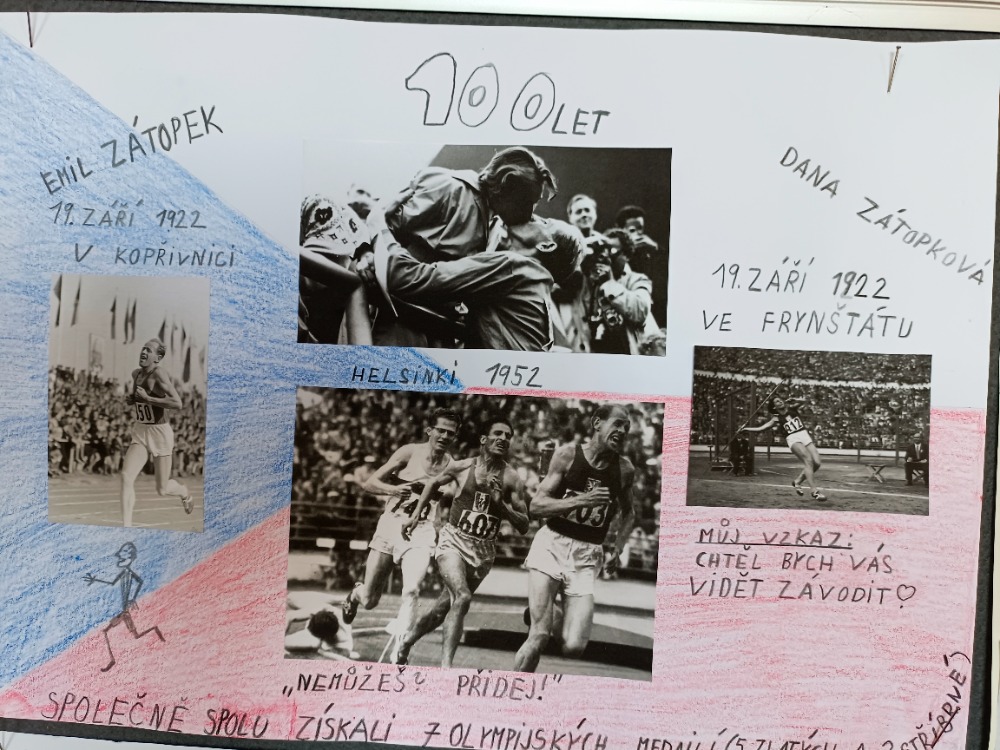 100 LET
EMIL ZÁTOPEK
19. ZÁŘÍ 1922
V KOPŘIVNICI
DANA ZÁTOPKOVÁ
19. ZÁŘÍ 1922
VE FRYNŠTÁTU
150
HELSINKI 1952
603
MŮJ VZKAZ:
CHTĚL BYCH VÁS
VIDĚT ZÁVODIT♡
„NEMŮŽEŠ? PŘIDEJ!"
SPOLEČNĚ SPOLU ZÍSKALI 7 OLYMPIJSKÝCH MEDAILÍ (5 ZLATÝCH A 2 STŘÍBRNÉ)